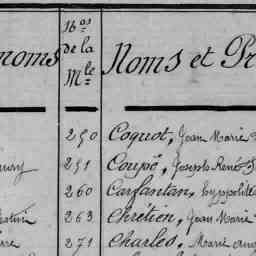 noms Nos de la Mle Noms et Pr
250 Coquot, Jean Marie
251 Coupé, Joseph René
260 Carfantan, Hyppolite
263 Chrétien, Jean Marie
271 Charles, Marie Ang